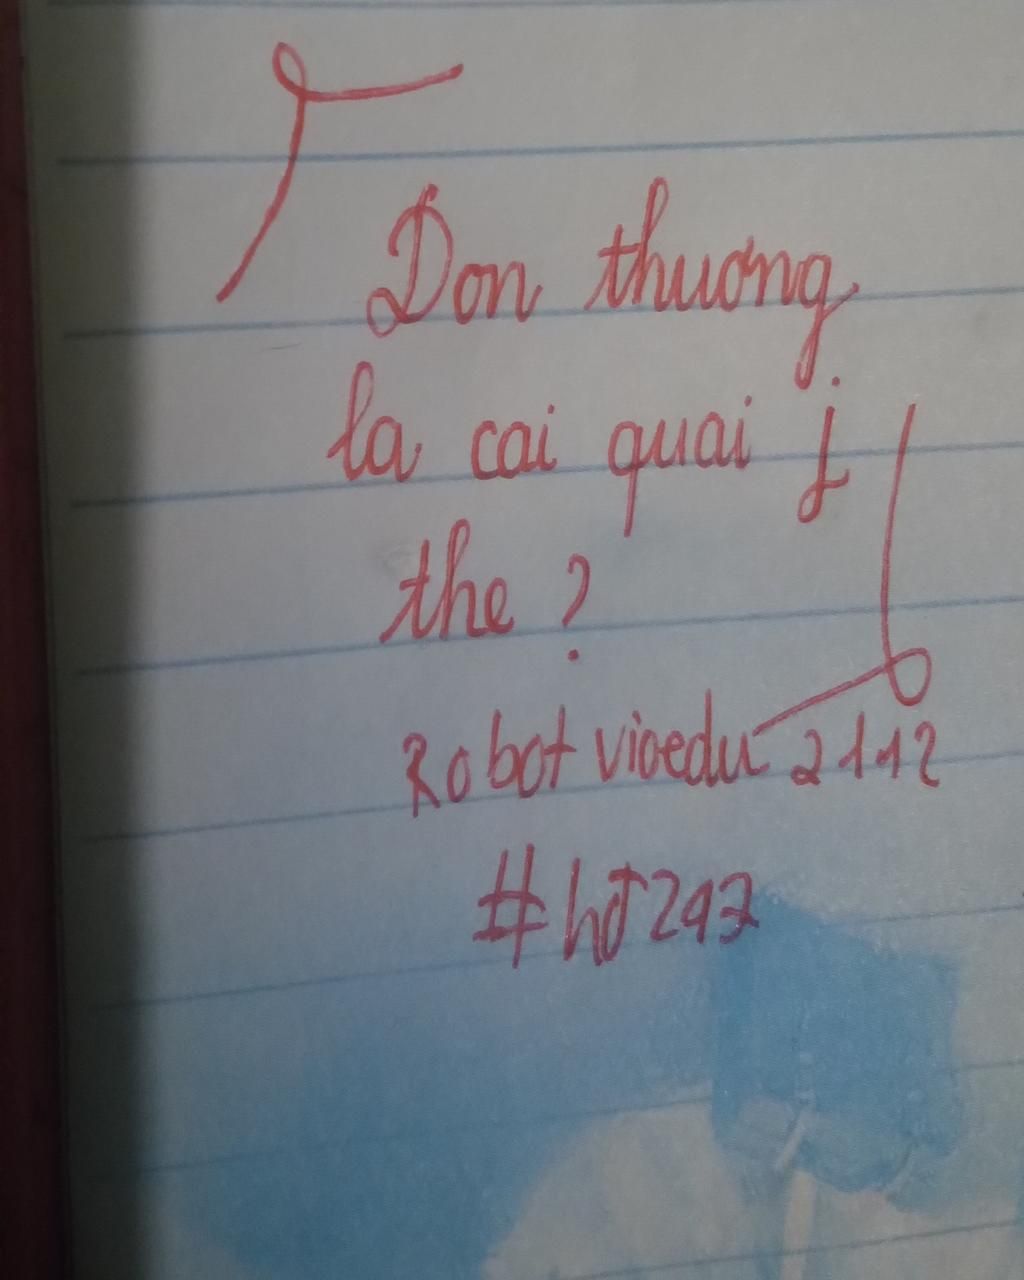 Don thuơng
la cai quai j
the ?
Robot vioedu 2112
#hơt247